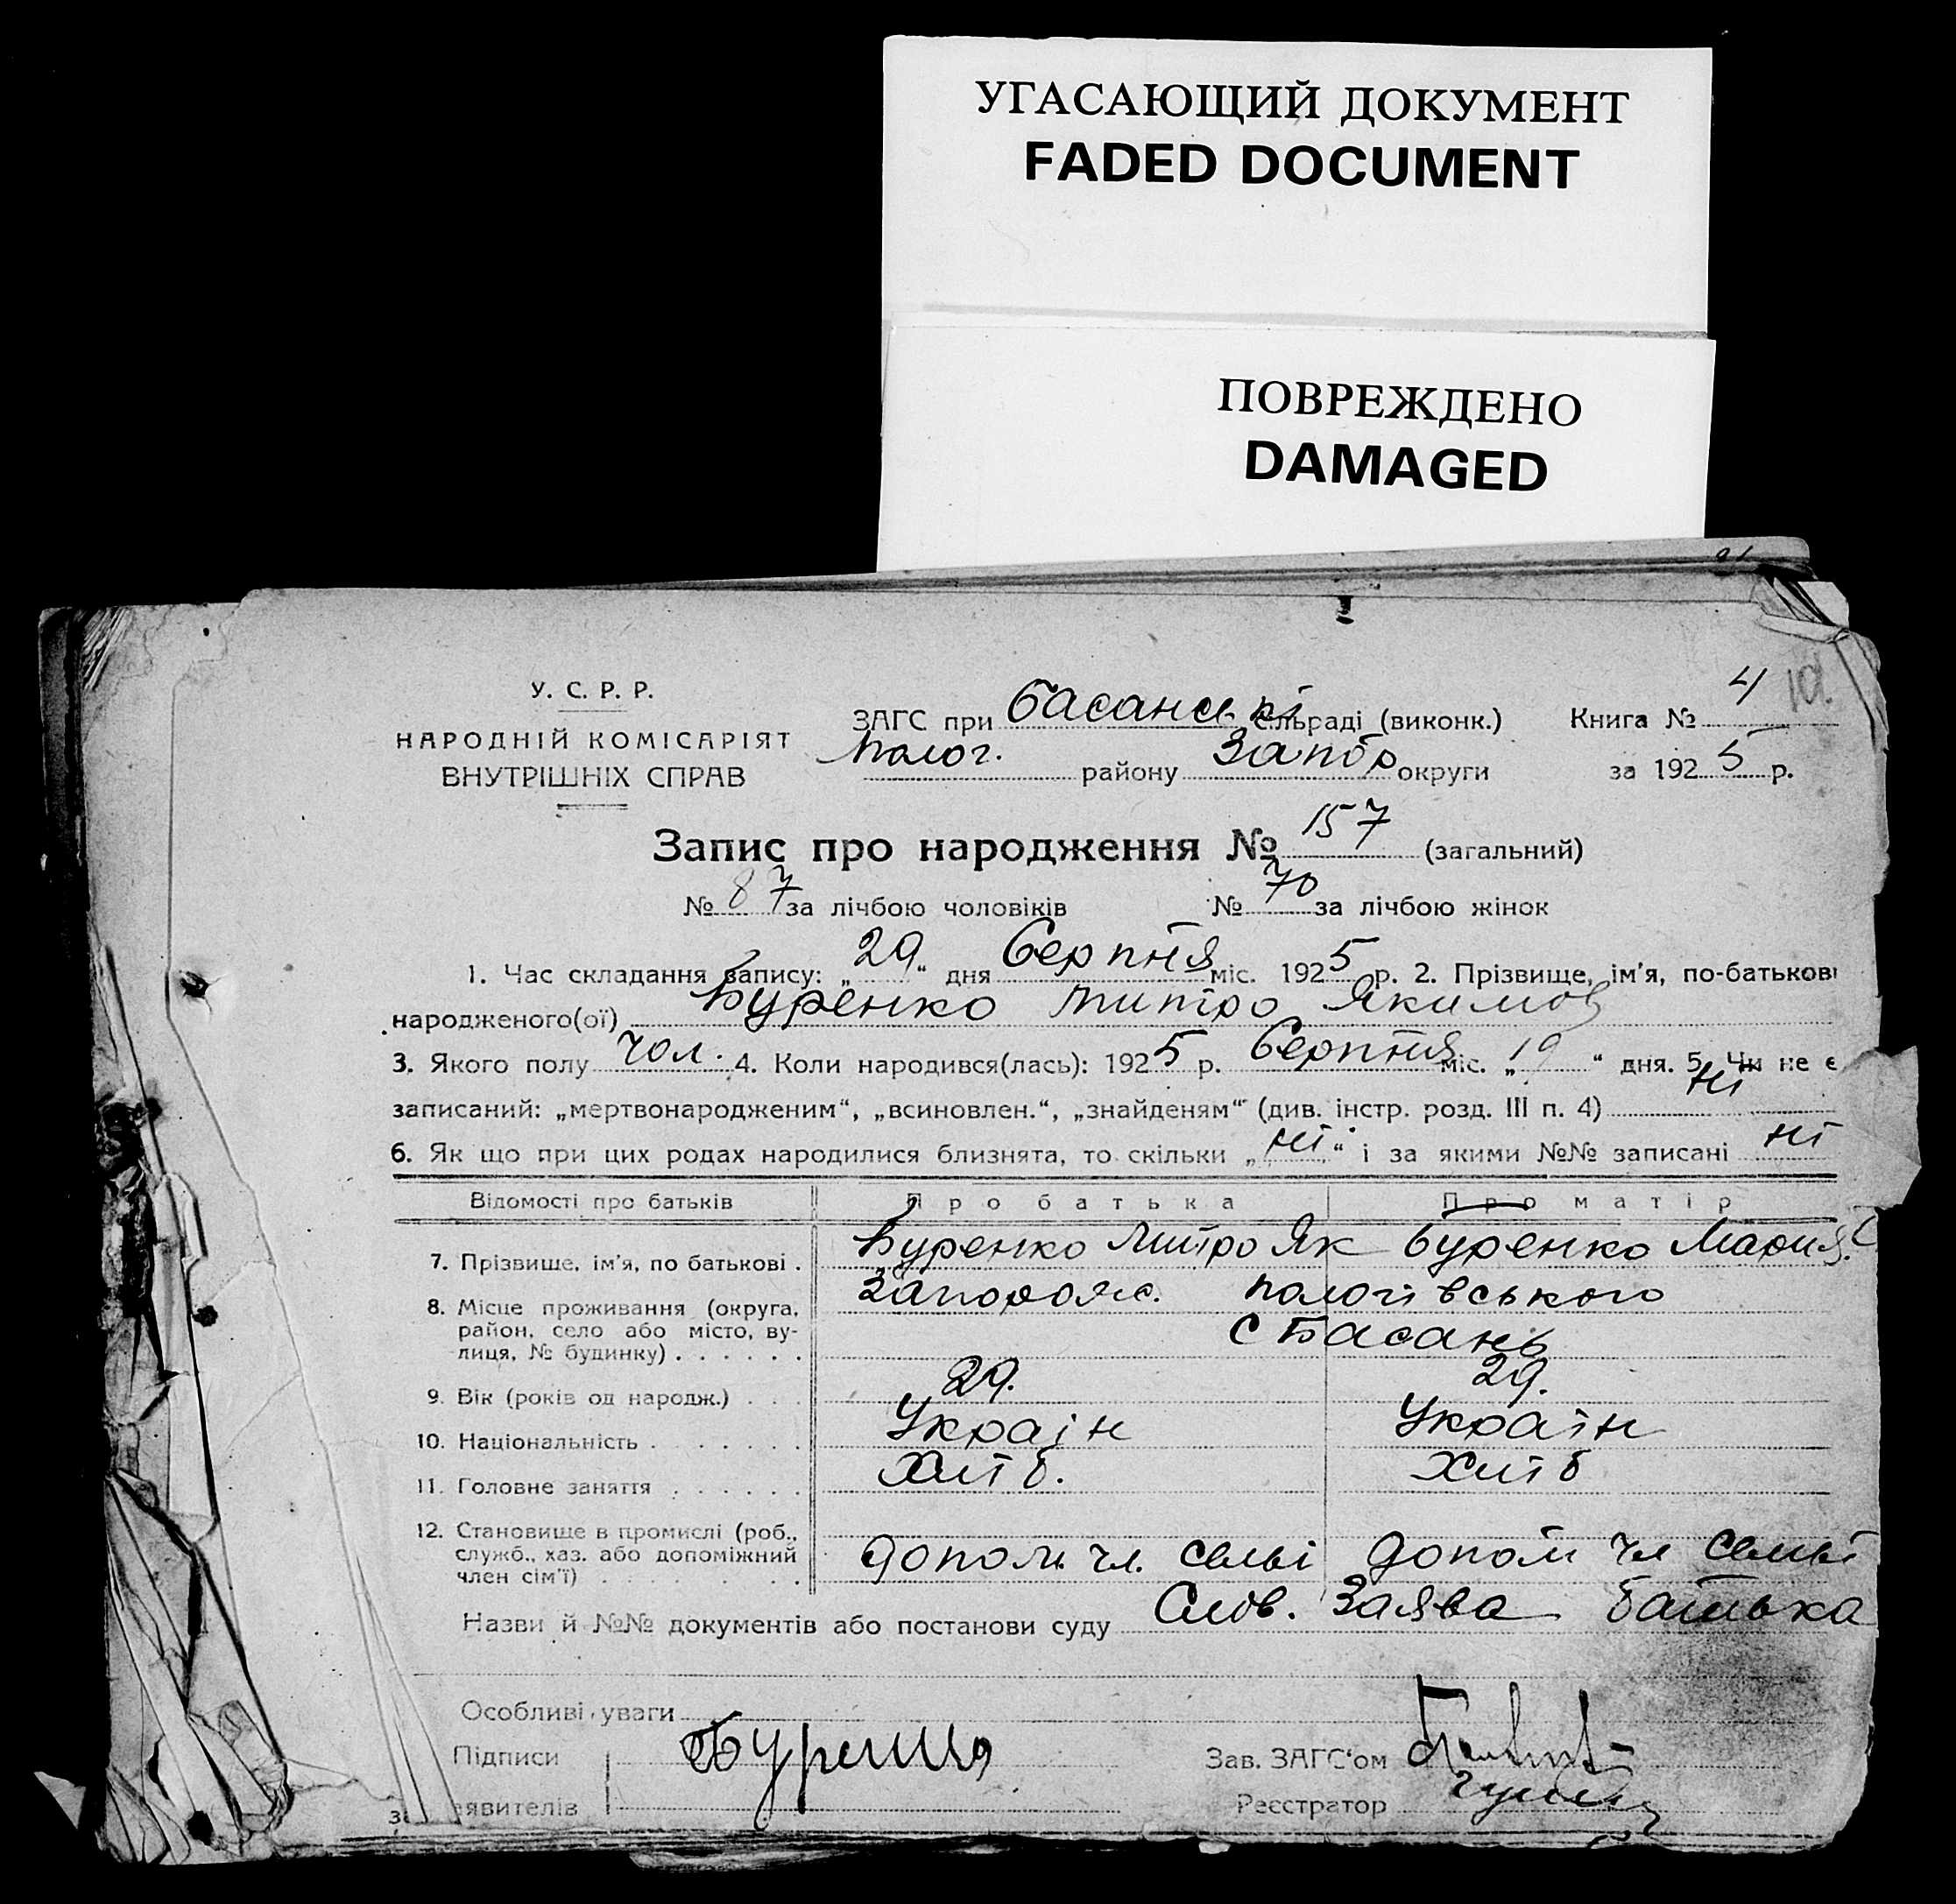 УГАСАЮЩИЙ ДОКУМЕНТ
FADED DOCUMENT
ПОВРЕЖДЕНО
DAMAGED
У. С. Р. Р.
НАРОДНІЙ КОМІСАРІЯТ
ВНУТРІШНІХ СПРАВ
ЗАГС при Басанськ. сільраді (виконк.) Книга № 4
Полог. району Запор округи за 1925 р.
Запис про народження № 157 (загальний)
№ 87 за лічбою чоловіків № 70 за лічбою жінок
1. Час складання запису: „29“ дня Серпня міс. 1925 р. 2. Прізвище, ім'я, по-батькові
народженого(ої) Буренко Митро Якимов
3. Якого полу чол. 4. Коли народився(лась): 1925 р. Серпня міс. „19“ дня. 5. Чи не є
записаний: „мертвонародженим“, „всиновлен.“, „знайденям“ (див. інстр. розд. III п. 4) Ні
6. Як що при цих родах народилися близнята, то скільки „ні“ і за якими №№ записані ні
Відомості про батьків Про батька Про матір
7. Прізвище, ім'я, по батькові . Буренко Митро Як Буренко Мария
8. Місце проживання (округа, Запорож. пологівського
район, село або місто, ву- с Басань
лиця, № будинку) . . . . . .
9. Вік (років од народж.) . . . 29. 29.
10. Національність . . . . . . . Україн Україн
11. Головне заняття . . . . . . Хліб. Хліб
12. Становище в промислі (роб.,
служб., хаз. або допоміжний допом. чл. семьі допом чл семьі
член сім'ї) . . . . . . .
Назви й №№ документів або постанови суду Слов. Заява батька
Особливі уваги
Підписи Зав. ЗАГС'ом
заявителів Реєстратор